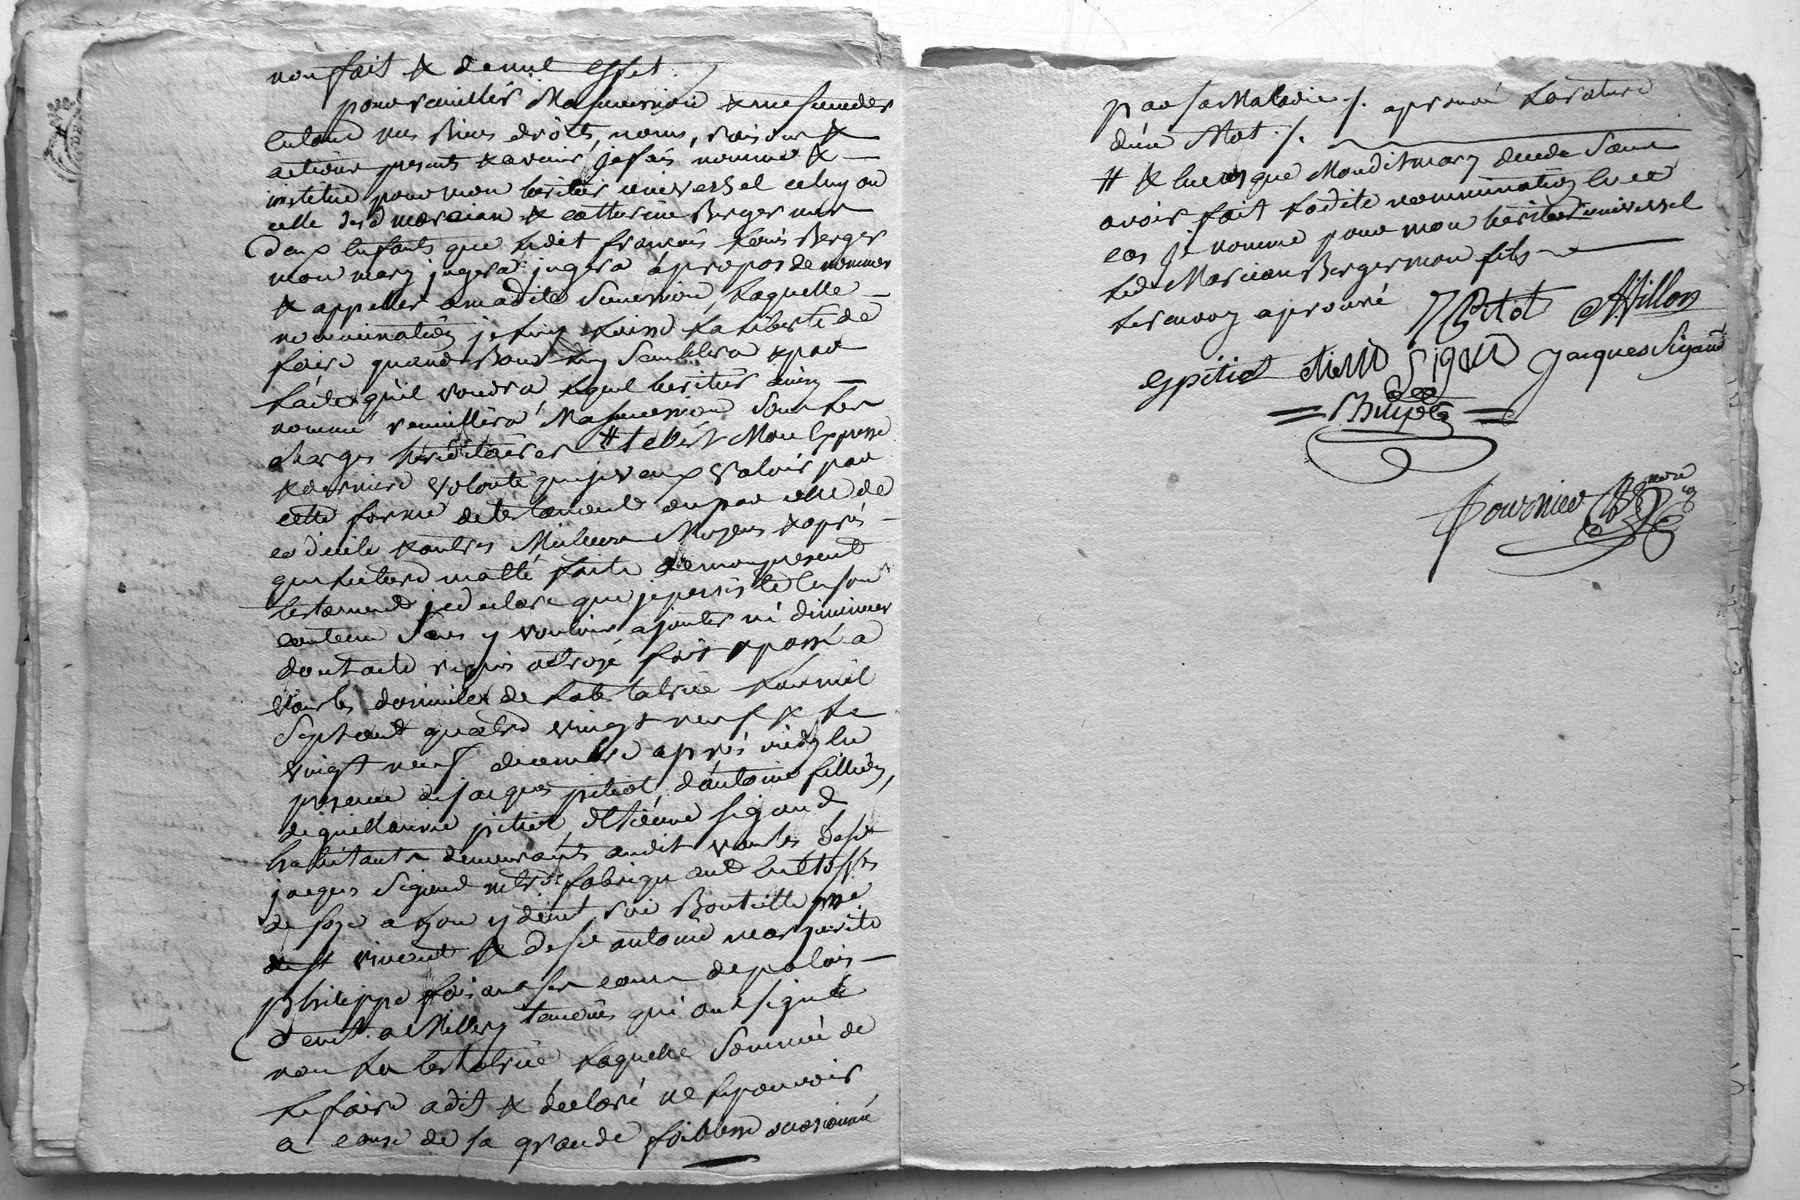 non fait & de nul effet.
pour recuillir Ma succession & me succeder
en tous mes Biens droits, noms, raisons &
actions presents & avenir, je fais, nomme &
institue pour mon heritier universel celuy ou
celle desd marcian & catterine Berger mes
deux Enfants que ledit francois Louis Berger
mon mary jugera jugera à propos de nommer
& appeller a madite Succession, Laquelle
nomination je luy Laisse La liberté de
faire quand Bon luy Semblera & par
L'acte qu'il voudra Lequel heritier ainsy
nommé recuillira Ma succession Sous les
charges héréditaires # telle est Mon Expresse
& derniere volonté que je veux valoir par
cette forme de testament ou par celle de
codicile & autres Meilleurs Moyens & après
que lecture m'a été faite de mon present
testament je declare que je persiste En son
contenu Sans y vouloir ajouter ni diminuer
dont acte requis octroyé fait & passé a
vourles domicile de La testatrice L'an mil
Sept cent quatre vingt neuf & Le
vingt neuf decembre après midy En
presence de jacques pitiot, d'antoine fillion,
de guillaume pitiot, d'Etienne sigaud
habitants demeurants audit vourles de sr
jacques Sigaud md fabriquant En Etoffes
de soye a Lyon y demt rüe Bouteille psse
de st vincent & de sr antoine marguerite
Philippe
demt a Millery temoins qui ont signé
non La testatrice Laquelle Sommée de
Le faire a dit & déclaré ne Le pouvoir
a cause de sa grande foiblesse occasionné
par sa Maladie ./. aprouvé La rature
d'un Mot ./.
# & En cas que Mondit mary decede Sans
avoir fait Ladite nomination En ce
cas je nomme pour mon héritier universel
Led Marcian Berger mon fils
Le renvoy aprouvé J Pitiot A fillon
G pitiot Etienne Sigaud Jacques Sigaud
Philippe
Fournier